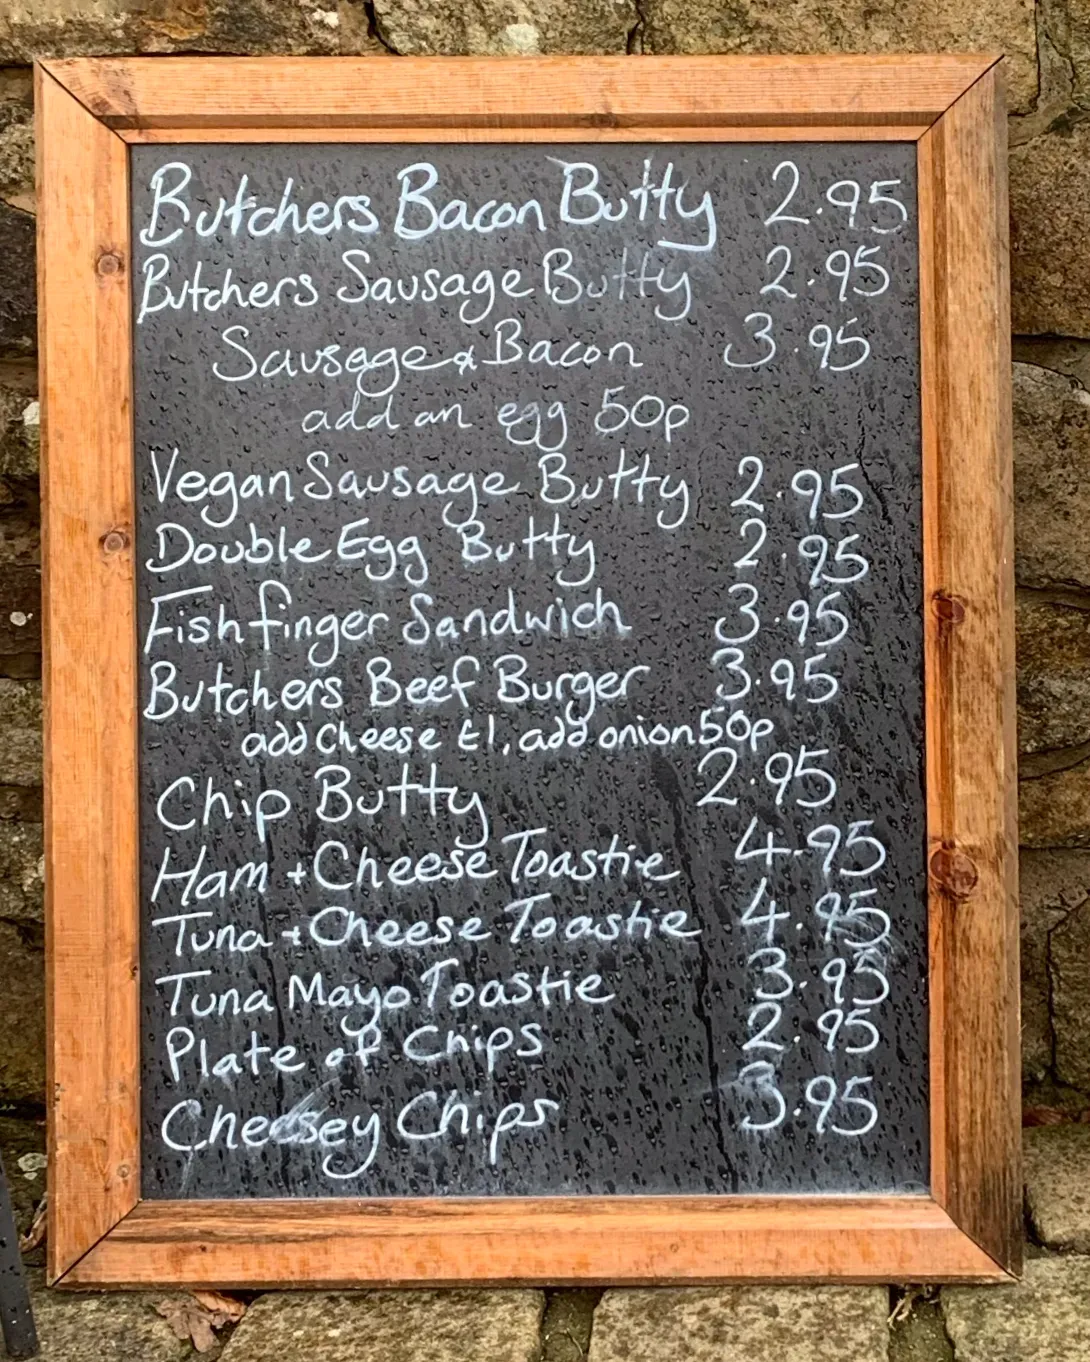 Butchers Bacon Butty 2.95
Butchers Sausage Butty 2.95
Sausage & Bacon 3.95
add an egg 50p
Vegan Sausage Butty 2.95
Double Egg Butty 2.95
Fish finger Sandwich 3.95
Butchers Beef Burger 3.95
add cheese £1, add onion 50p
Chip Butty 2.95
Ham + Cheese Toastie 4.95
Tuna + Cheese Toastie 4.95
Tuna Mayo Toastie 3.95
Plate of Chips 2.95
Cheesey Chips 3.95